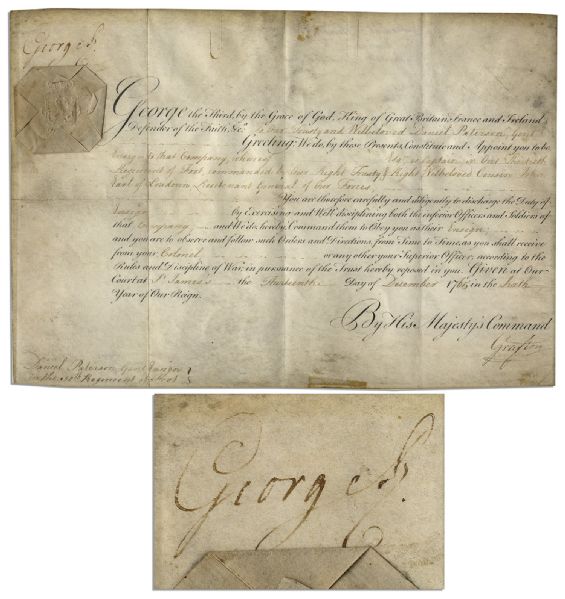 George R.
George the Third, by the Grace of God, King of Great Britain, France and Ireland,
Defender of the Faith, &c. To Our Trusty and Wellbeloved Daniel Paterson, Gent.
Greeting: We do, by these Presents, Constitute and Appoint you to be
Ensign to that Company, whereof Esq. is Captain in Our Thirtieth
Regiment of Foot, commanded by Our Right Trusty & Right Wellbeloved Cousin John
Earl of Loudoun Lieutenant General of Our Forces
You are therefore carefully and diligently to discharge the Duty of
Ensign by Exercising and Well disciplining both the inferior Officers and Soldiers of
that Company and We do hereby Command them to Obey you as their Ensign
and you are to observe and follow such Orders and Directions, from Time to Time, as you shall receive
from your Colonel or any other your Superior Officer, according to the
Rules and Discipline of War, in pursuance of the Trust hereby reposed in you. Given at Our
Court at St. James's the Day of December 1765 in the Sixth
Year of Our Reign.
By His Majesty's Command
Grafton
Daniel Paterson, Gent. Ensign
in the 30th Regiment of Foot
George R.